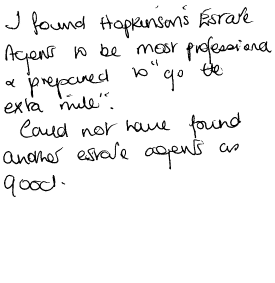 I found Hopkinson's Estate
Agents to be most professional
& prepared to "go the
extra mile".
Could not have found
another estate agents as
good.